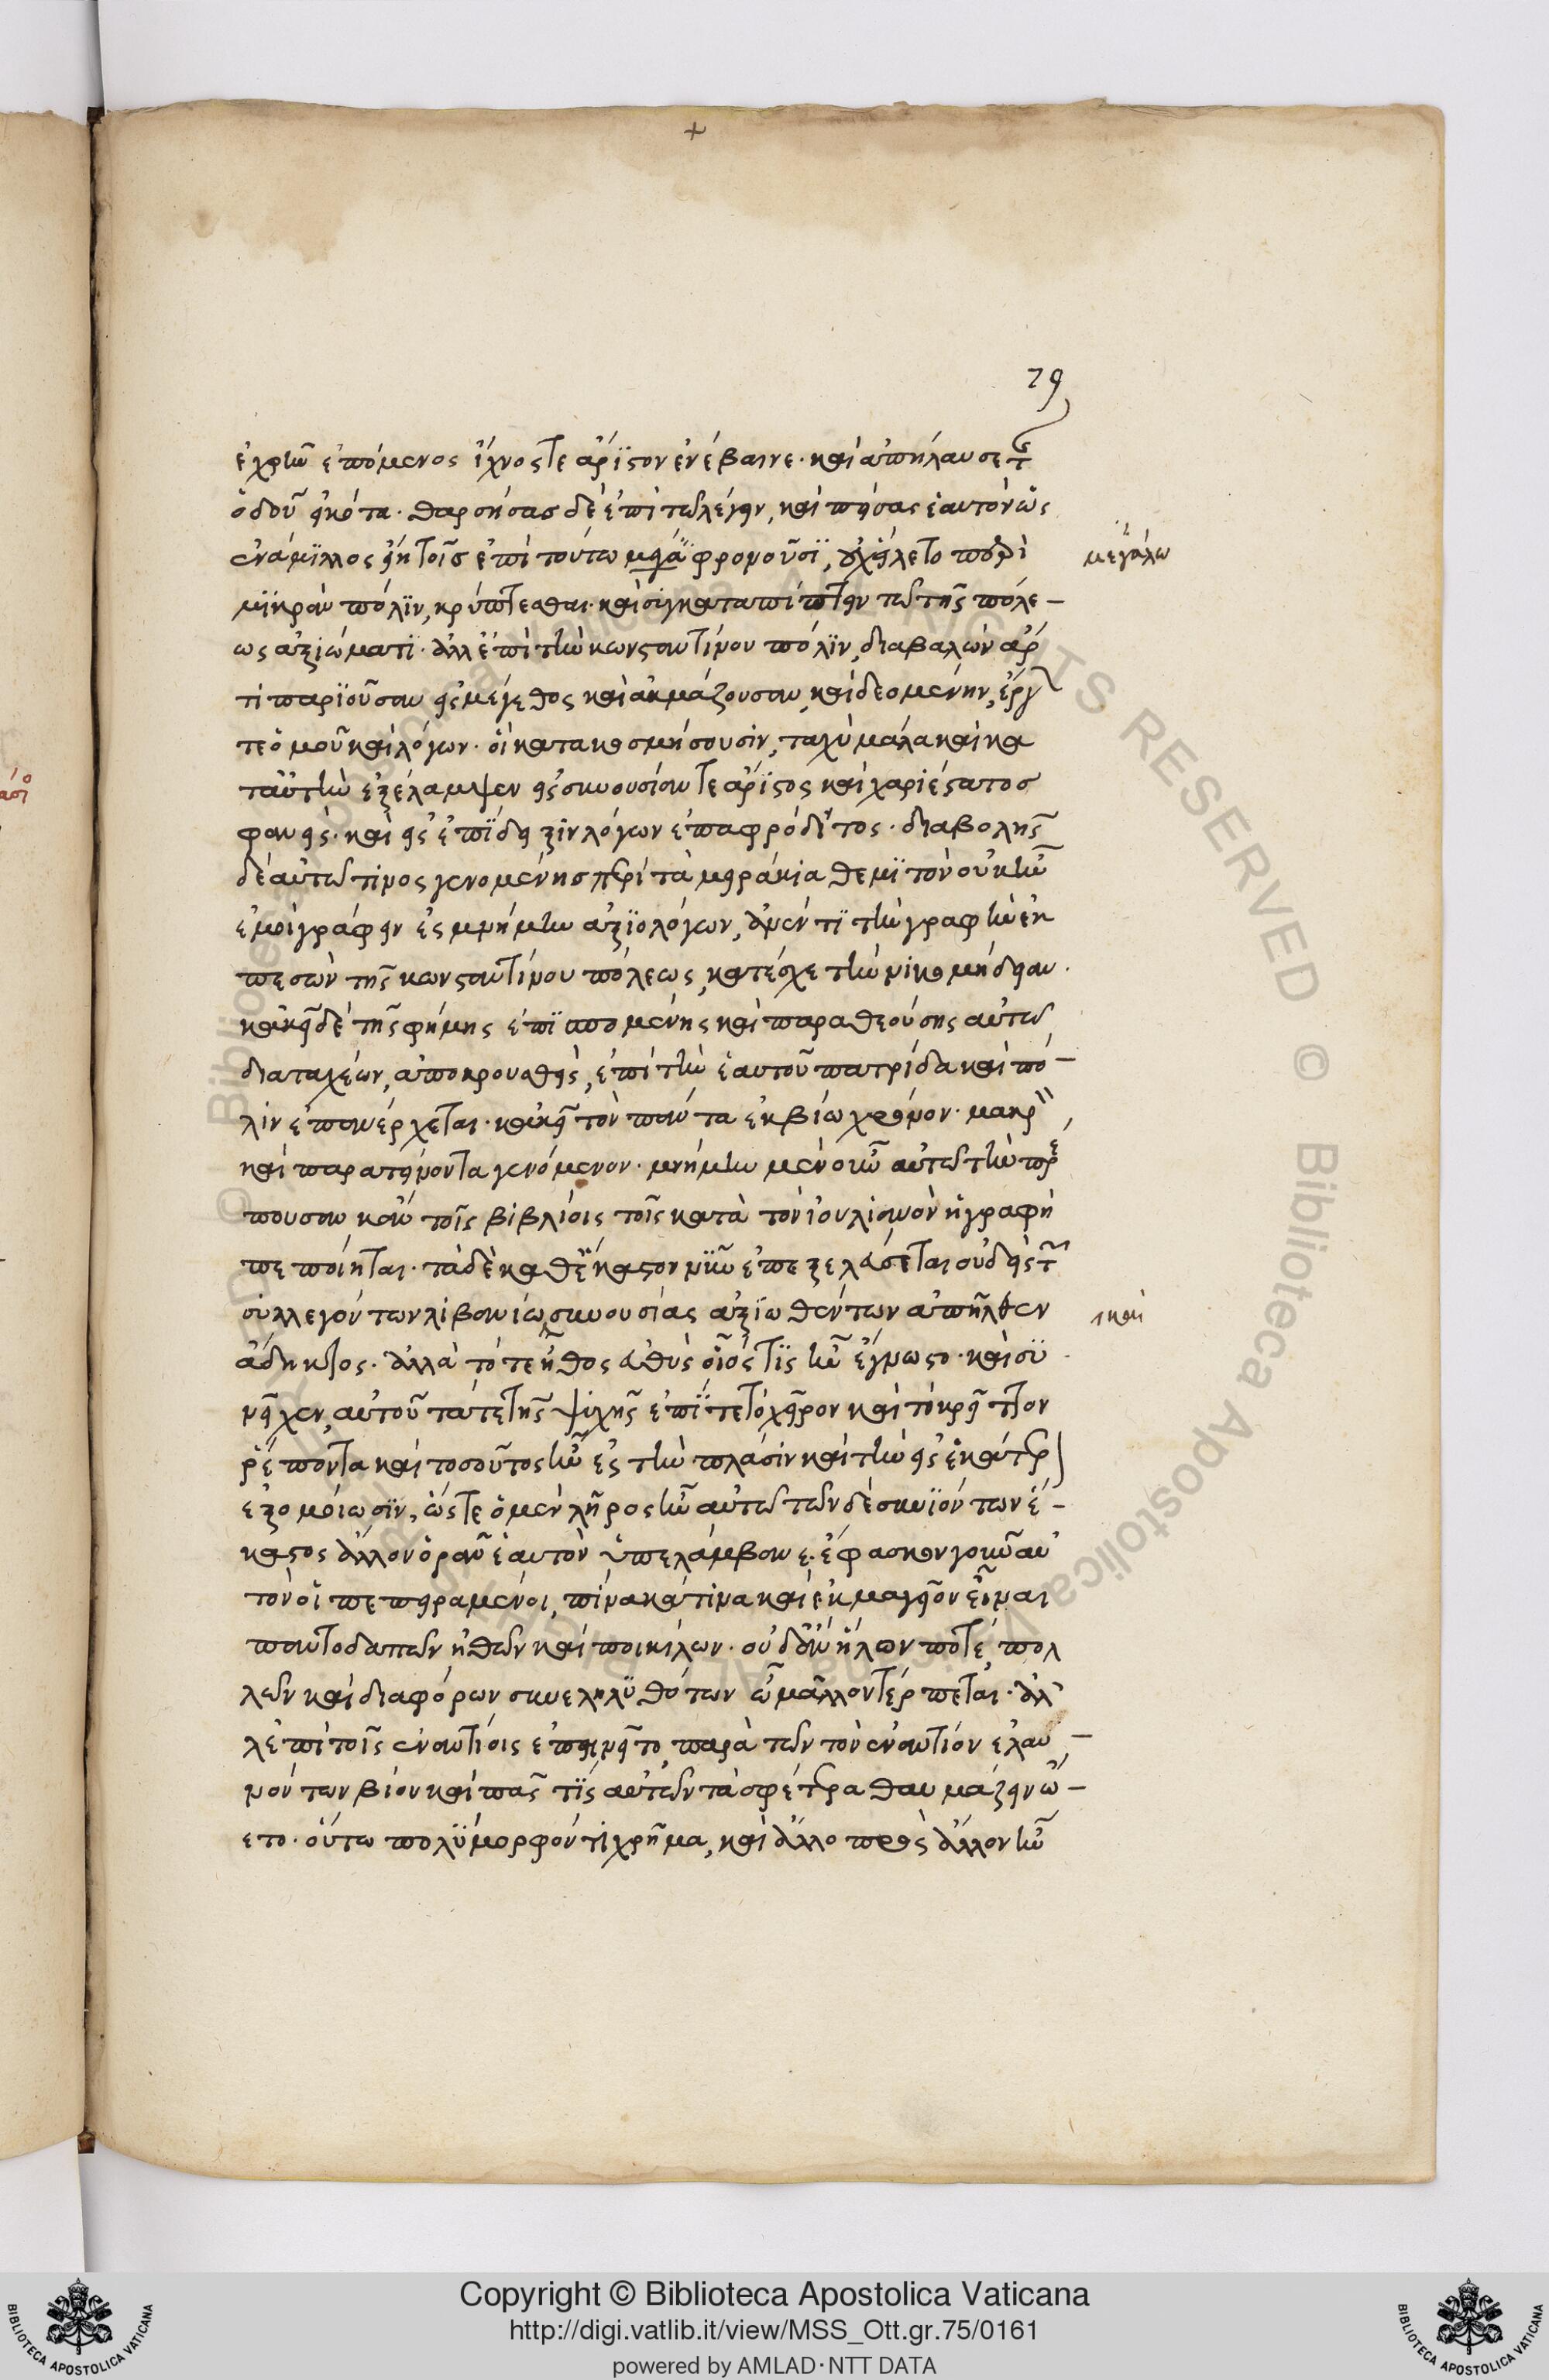 79
ἐχρῆν ἑπόμενος ἴχνος τε ἄριστον ἐνέβαινε· καὶ ἀπήλαυσε τῆς
ὁδοῦ εἰκότα. θαρσήσας δὲ ἐπὶ τῷ λέγειν, καὶ πείσας ἑαυτὸν ὡς
ἐνάμιλλος εἴη τοῖς ἐπὶ τούτῳ μεγάλα φρονοῦσι, οὐχ εἵλετο περὶ
μικρὰν πόλιν, κρύπτεσθαι· καὶ συγκαταπίπτειν τῷ τῆς πόλε-
ως ἀξιώματι· ἀλλ' ἐπὶ τὴν κωνσταντίνου πόλιν, διαβαλὼν ἄρ
τι παριοῦσαν εἰς μέγεθος καὶ ἀκμάζουσαν, καὶ δεομένην, ἔργων
τε ὁμοῦ καὶ λόγων· οἳ κατακοσμήσουσιν, ταχὺ μάλα καὶ κα
ταύτην ἐξέλαμψεν εἰς συνουσίαν τε ἄριστος καὶ χαριέστατος
φανείς· καὶ εἰς ἐπίδειξιν λόγων ἐπαφρόδιτος· διαβολῆς
δὲ αὐτῷ τινος γενομένης περὶ τὰ μειράκια θεμιτὸν οὐκ ἦν
ἐμοὶ γράφειν ἐς μνήμην ἀξιολόγων, ἀνέντι τὴν γραφὴν ἐκ
πεσὼν τῆς κωνσταντίνου πόλεως, κατέσχε τὴν νικομήδειαν·
κἀκεῖ δὲ τῆς φήμης ἐπισπομένης καὶ παραθεούσης αὐτῷ
διαταχέων, ἀποκρουσθείς, ἐπὶ τὴν ἑαυτοῦ πατρίδα καὶ πό-
λιν ἐπανέρχεται· κἀκεῖ τὸν πάντα ἐκβίω χρόνον· μακρὸν
καὶ παρατείνοντα γενόμενον· μνήμην μὲν οὖν αὐτῷ τὴν πρέ
πουσαν κἀν τοῖς βιβλίοις τοῖς κατὰ τὸν ἰουλιανὸν ἡ γραφὴ
πεποίηται· τὰ δὲ καθέκαστον νῦν ἐπεξελεύσεται οὐδεὶς τῶν
συλλεγόντων λιβανίῳ συνουσίας ἀξιωθέντων ἀπῆλθεν
ἄδηκτος· ἀλλὰ τό τε ἦθος εὐθὺς οἷός τις ἦν ἔγνωστο· καὶ συ
νεῖχεν, αὐτοῦ τά τε τῆς ψυχῆς ἐπί τε τὸ χεῖρον καὶ τὸ κρεῖττον
ῥέποντα καὶ τοσοῦτος ἦν ἐς τὴν πλάσιν καὶ τὴν εἰς ἑκάτερον
ἐξομοίωσιν, ὥστε ὁ μὲν λῆρος ἦν αὐτῷ τῶν δὲ συνιόντων ἕ-
καστος ἄλλον ὁρᾶν ἑαυτὸν ὑπελάμβανε· ἔφασκον γοῦν αὐ
τὸν οἱ πεπειραμένοι, πίνακά τινα καὶ ἐκμαγεῖον εἶναι
παντοδαπῶν ἠθῶν καὶ ποικίλων· οὐδ' ἂν ἥλων ποτὲ, πολ
λῶν καὶ διαφόρων συνεληλυθότων ᾧ μᾶλλον τέρπεται· ἀλ
λ' ἐπὶ τοῖς ἐναντίοις ἐπῃνεῖτο παρὰ τῶν τὸν ἐναντίον ἐλαυ-
νόντων βίον καὶ πᾶς τις αὐτῶν τὰ σφέτερα θαυμάζειν ᾤ-
ετο· οὕτω πολύμορφόν τι χρῆμα, καὶ ἄλλο πρὸς ἄλλον ἦν
μεγάλω
καὶ
Copyright © Biblioteca Apostolica Vaticana
http://digi.vatlib.it/view/MSS_Ott.gr.75/0161
powered by AMLAD·NTT DATA